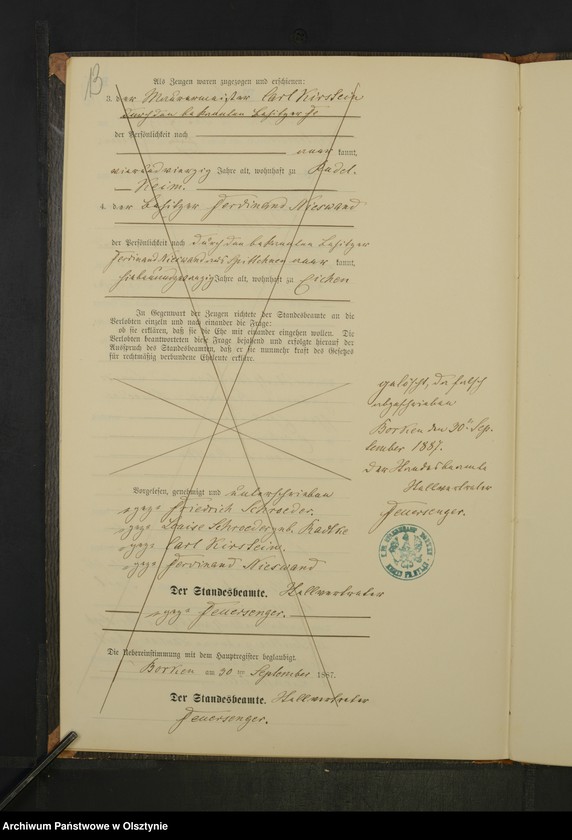 13
Als Zeugen waren zugezogen und erschienen:
3. der Maurermeister Carl Kirstein
durch den bekannten Besitzer
der Persönlichkeit nach
kannt,
vierundvierzig Jahre alt, wohnhaft zu Radel.
heim.
4. der Besitzer Ferdinand Nieswand
der Persönlichkeit nach durch den bekannten Besitzer
Ferdinand Nieswand aus kannt,
Jahre alt, wohnhaft zu Eichen
In Gegenwart der Zeugen richtete der Standesbeamte an die
Verlobten einzeln und nach einander die Frage:
ob sie erklären, daß sie die Ehe mit einander eingehen wollen. Die
Verlobten beantworteten diese Frage bejahend und erfolgte hierauf der
Ausspruch des Standesbeamten, daß er sie nunmehr kraft des Gesetzes
für rechtmäßig verbundene Eheleute erkläre.
gelöscht, da falsch
abgeschrieben
Borken den 30ten Sep-
tember 1887.
Der Standesbeamte
Stellvertreter
Feuersenger.
Vorgelesen, genehmigt und unterschrieben
gez. Friedrich Schroeder.
gez. Louise Schroeder geb. Radtke
gez. Carl Kirstein.
gez. Ferdinand Nieswand
Der Standesbeamte. Stellvertreter
gez. Feuersenger.
Die Uebereinstimmung mit dem Hauptregister beglaubigt.
Borken am 30ten September 1887.
Der Standesbeamte. Stellvertreter
Feuersenger.
Archiwum Państwowe w Olsztynie